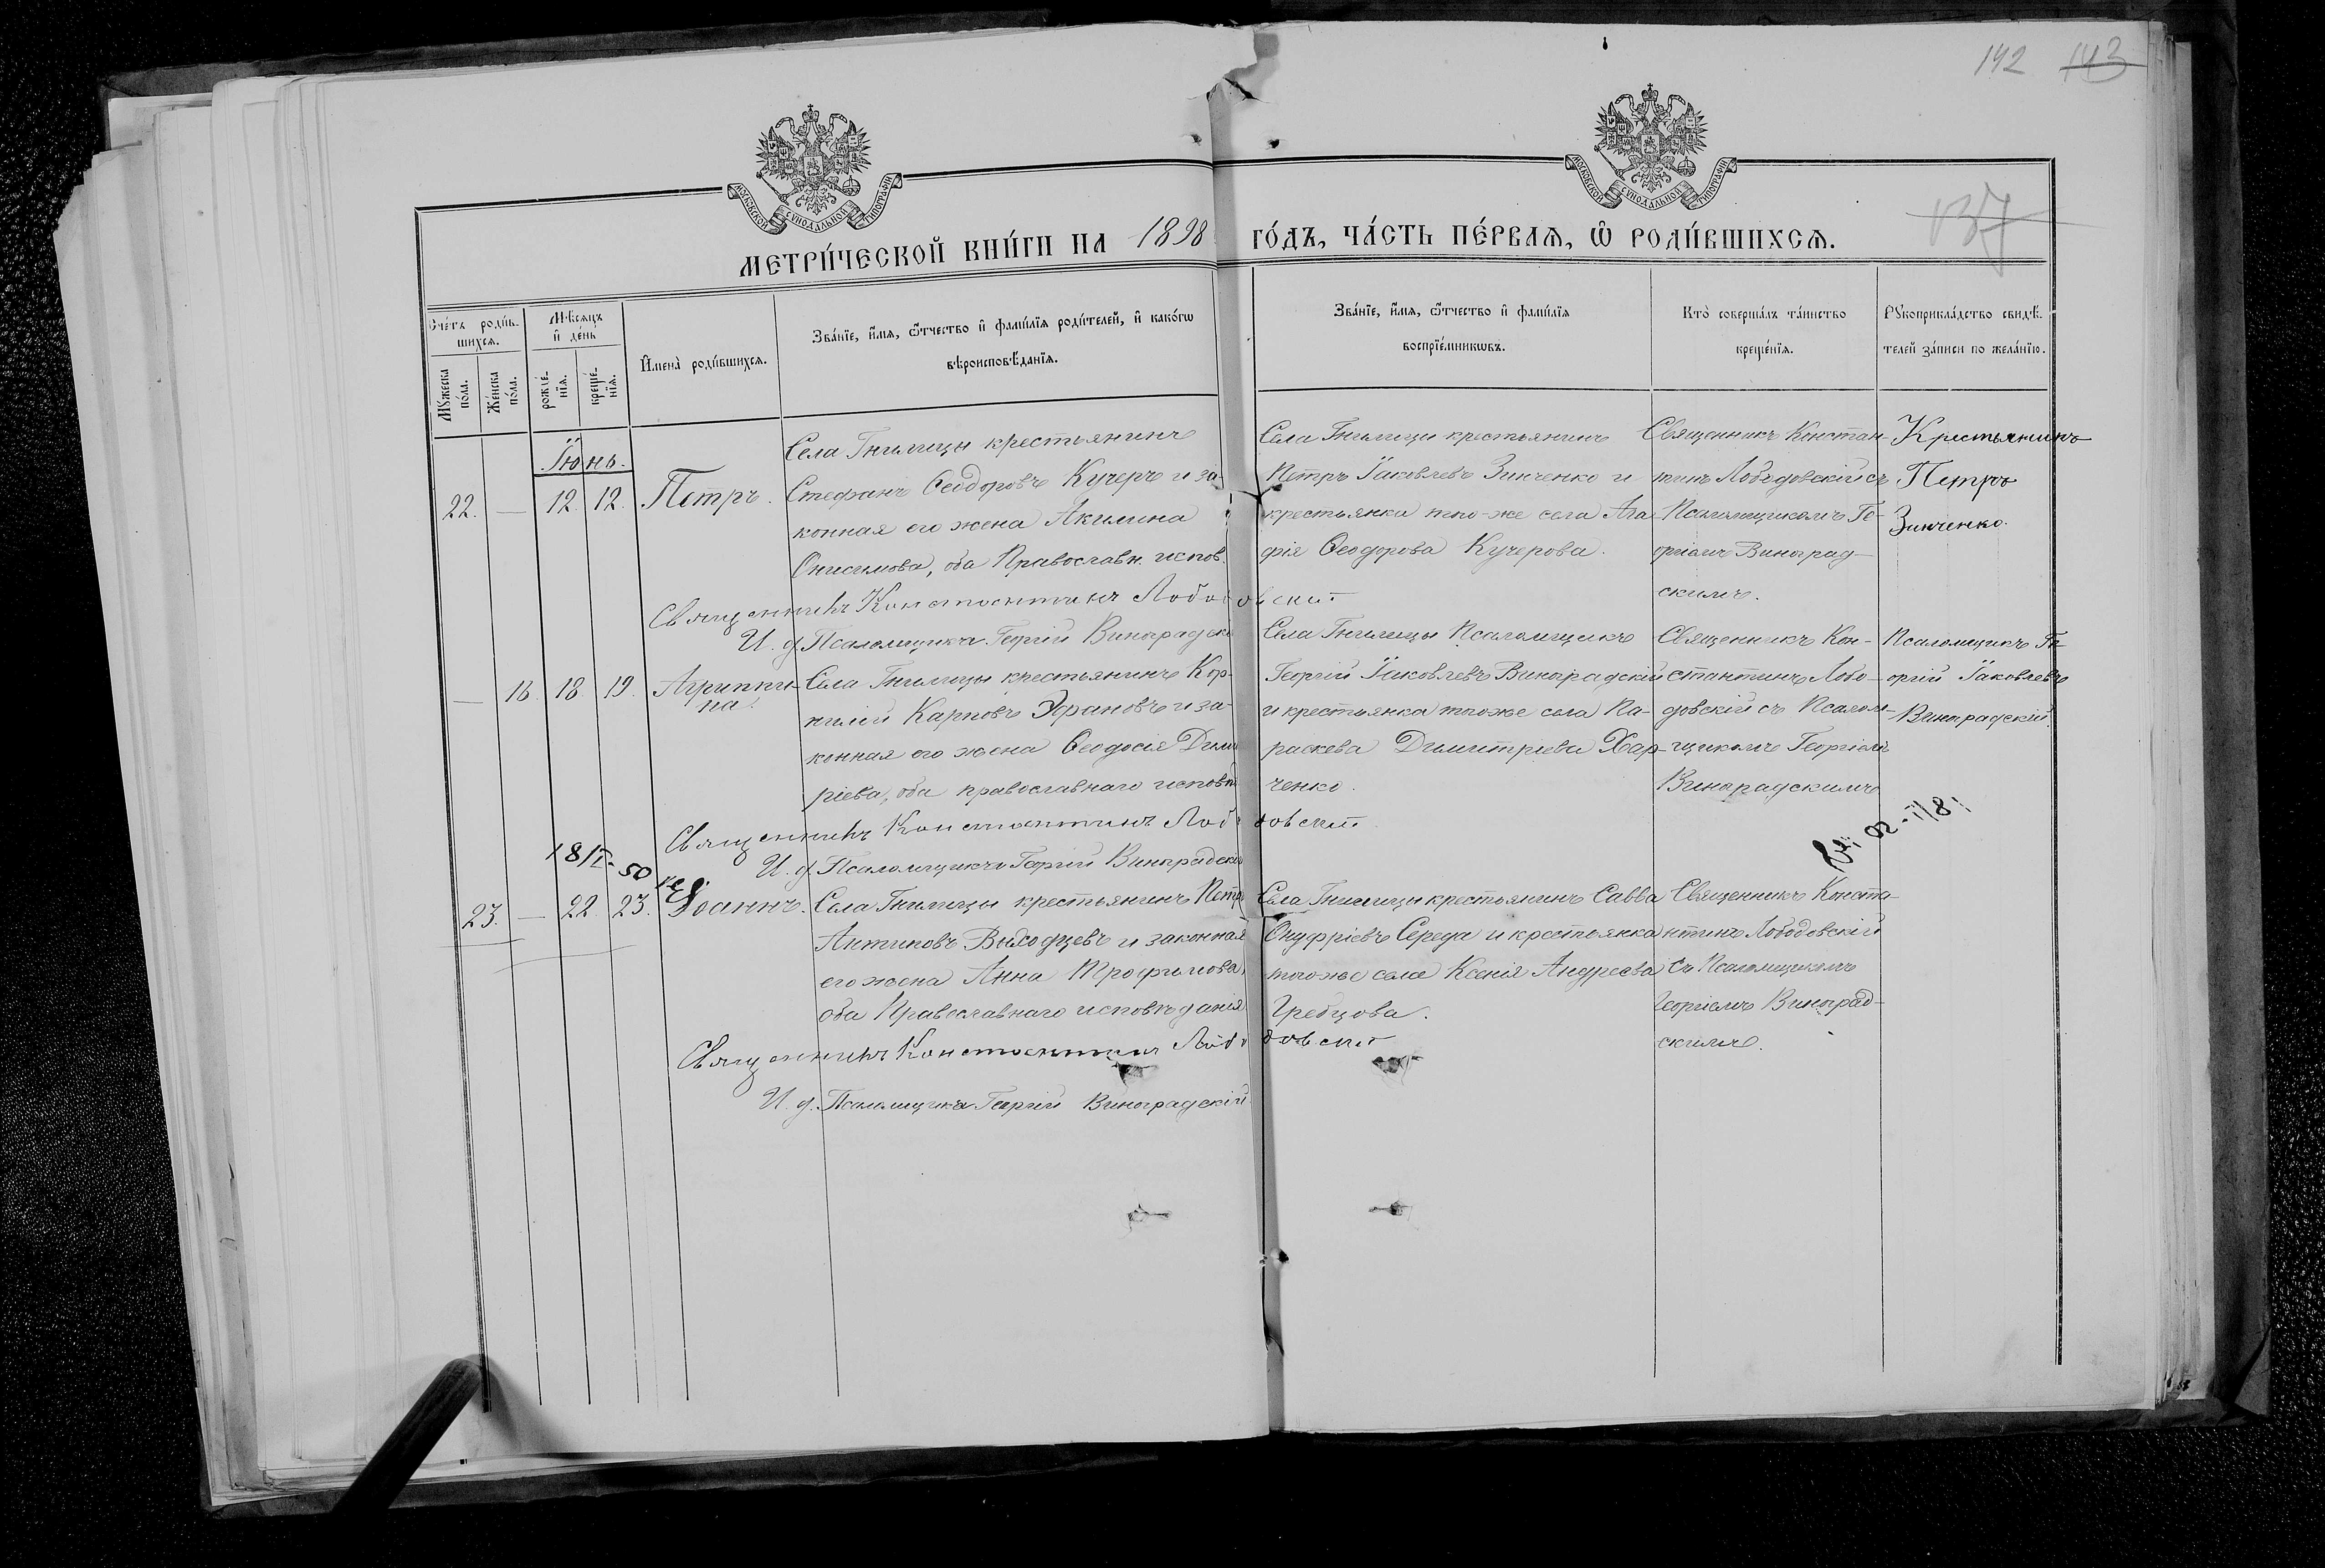 192 143
МОСКОВСКОЙ СѴНОДАЛЬНОЙ ТИПОГРАФІИ
МОСКОВСКОЙ СѴНОДАЛЬНОЙ ТИПОГРАФІИ
137
МЕТРИ́ЧЕСКОЙ КНИ́ГИ НА 1898 ГО́ДЪ, ЧА́СТЬ ПЕ́РВАѦ, Ѿ РОДИ́ВШИХСѦ.
Сче́тъ роди́в-
шихсѧ.
Мꙋжеска по́ла.
Же́нска по́ла.
Мѣ́сѧцъ
и҆ де́нь
рожде́-
нїѧ.
креще́-
нїѧ.
И҆мена̀ роди́вшихсѧ.
Зва́нїе, и҆́мѧ, ѻ҆́тчество и҆ фами́лїѧ роди́телей, и҆ како́гѡ
вѣроисповѣ́данїѧ.
Зва́нїе, и҆́мѧ, ѻ҆́тчество и҆ фами́лїѧ
воспрїе́мникѡвъ.
Кто̀ соверша́лъ та́инство
креще́нїѧ.
Рꙋкоприкла́дство свидѣ́-
телей за́писи по жела́нїю.
Іюнь.
22. — 12. 12. Петръ.
Села Гнилицы крестьянинъ
Стефанъ Ѳеодоровъ Кучеръ и за-
конная его жена Акилина
Онисимова, оба Православн. испов.
Села Гнилицы крестьянинъ
Петръ Іаковлевъ Зинченко и
крестьянка того-же села Ага-
фія Ѳеодорова Кучерова.
Священникъ Констан-
тинъ Лободовскій съ
Псаломщикомъ Ге-
оргіемъ Виноград-
скимъ.
Крестьянинъ
Петръ
Зинченко.
Священникъ Константинъ Лободовскій
И. д. Псаломщика Георгій Виноградскій
— 16. 18. 19. Агриппи-
на.
Села Гнилицы крестьянинъ Кор-
нилій Карповъ и за-
конная его жена Ѳеодосія Димит
ріева, оба православнаго исповѣд
Села Гнилицы Псаломщикъ
Георгій Іаковлевъ Виноградскій
и крестьянка того же села Па-
раскева Димитріева Хар-
ченко.
Священникъ Кон-
стантинъ Лобо-
довскій съ Псалом-
щикомъ Георгіемъ
Виноградскимъ
Псаломщикъ Ге-
оргій Іаковлевъ
Виноградскій.
Священникъ Константинъ Лободовскій
И. д. Псаломщика Георгій Виноградскій
18/I-50
23. — 22. 23. Іоаннъ.
Села Гнилицы крестьянинъ Петръ
Антиповъ Выходцевъ и законная
его жена Анна Трофимова,
оба Православнаго исповѣданія
Села Гнилицы крестьянинъ Савва
Онуфріевъ Середа и крестьянка
того же села Ксенія Андреева
Гребцова.
Священникъ Конста-
нтинъ Лободовскій
съ Псаломщикомъ
Георгіемъ Виноград-
скимъ.
Священникъ Константинъ Лободовскій
И. д. Псаломщика Георгій Виноградскій.